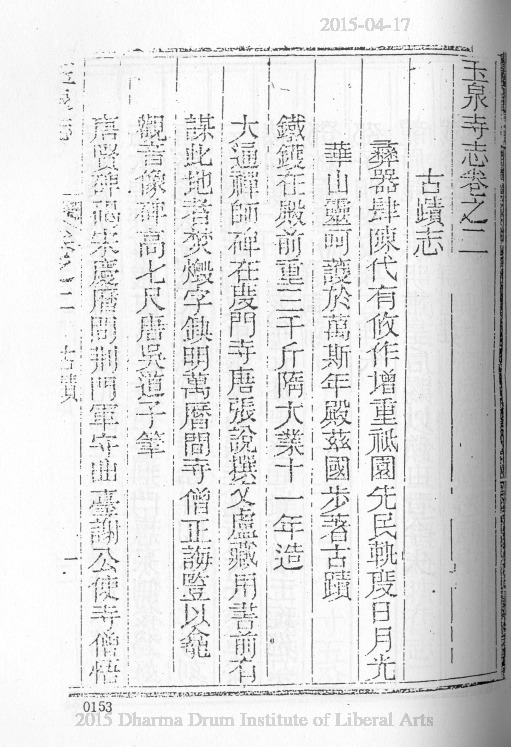 2015-04-17
玉泉寺志卷之二
古蹟志
彞器肆陳代有攸作增重祇園先民軌度日月光
華山靈呵護於萬斯年殿茲國步著古蹟
鐵鑊在殿前重三千斤隋大業十一年造
大通禪師碑在度門寺唐張說撰文盧藏用書前有
謀此地者焚燬字缺明萬曆間寺僧正誨豎以龕
觀音像碑高七尺唐吳道子筆
唐賢碑碣宋慶曆間荆門軍守山臺謝公使寺僧悟
卷之二 古蹟 一
0153
2015 Dharma Drum Institute of Liberal Arts